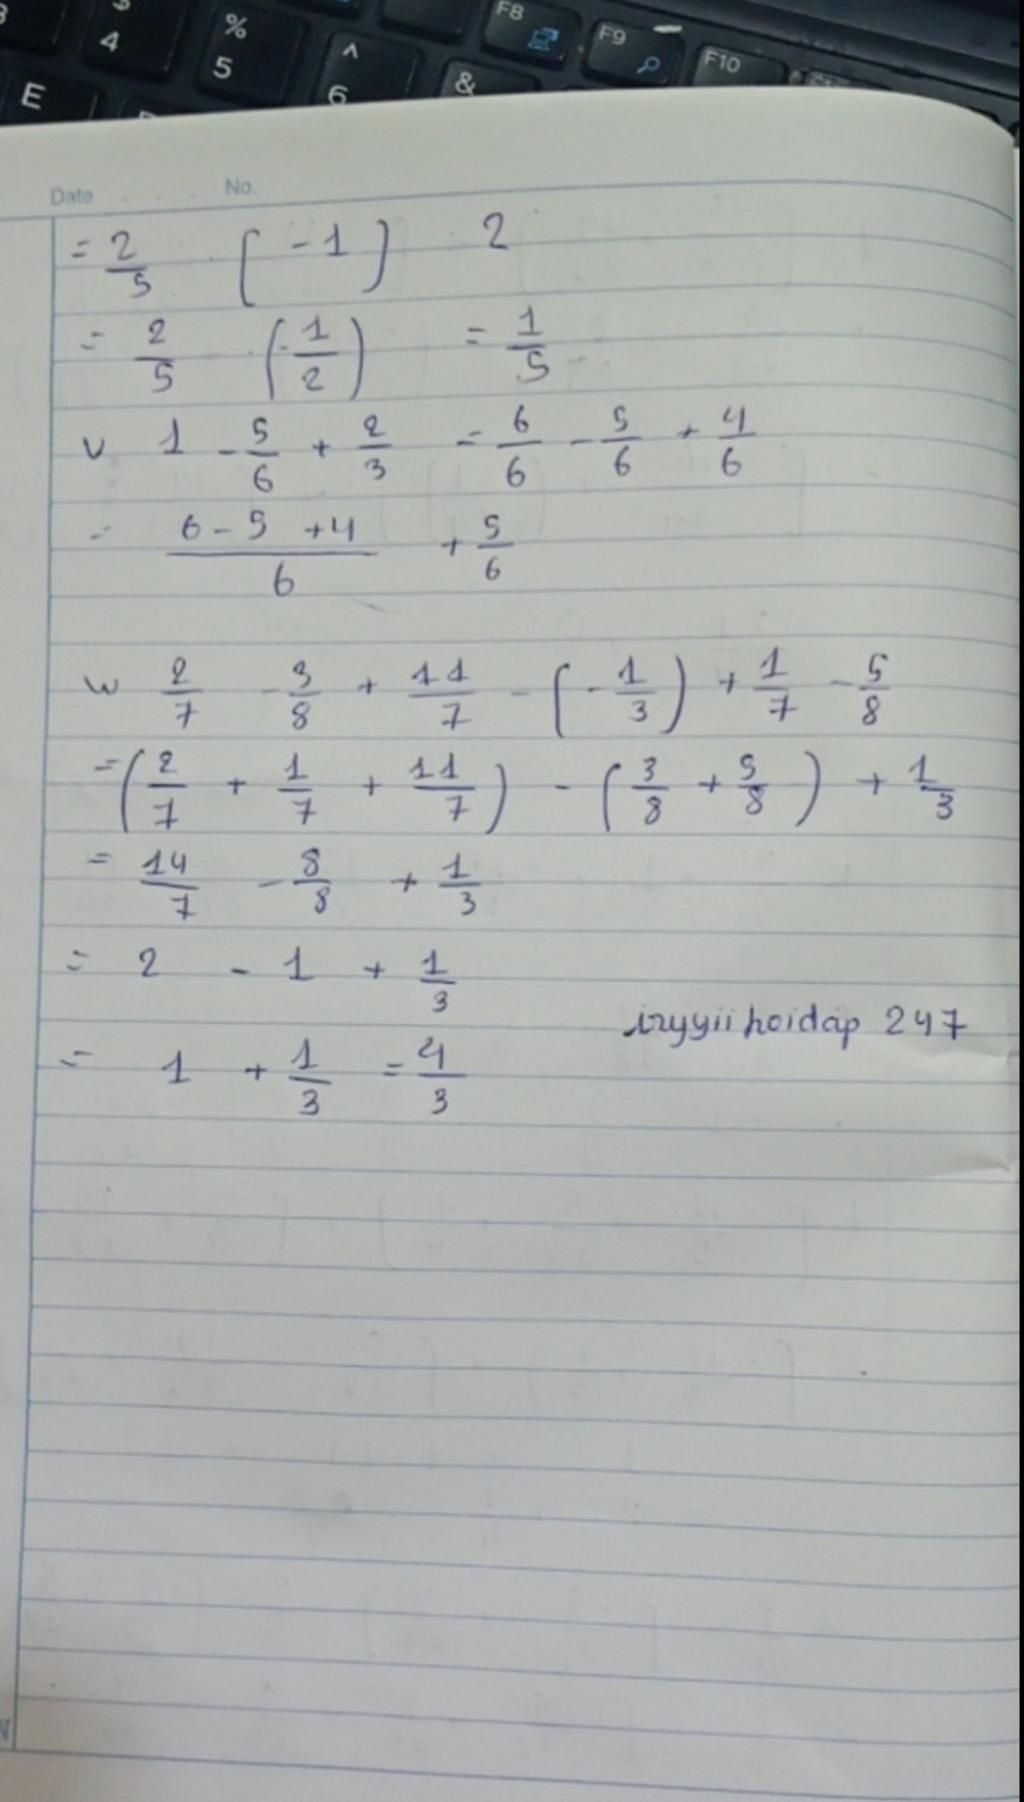 3 4 % 5 ^ 6 & F8 F9 F10
E
Date No.
= 2/5 [-1] 2
= 2/5 (-1/2) = 1/5
v 1 - 5/6 + 2/3 = 6/6 - 5/6 + 4/6
= (6 - 5 + 4)/6 + 5/6
w 2/7 - 3/8 + 11/7 - (-1/3) + 1/7 - 5/8
= (2/7 + 1/7 + 11/7) - (3/8 + 5/8) + 1/3
= 14/7 - 8/8 + 1/3
= 2 - 1 + 1/3
iryyii hoidap 247
= 1 + 1/3 = 4/3